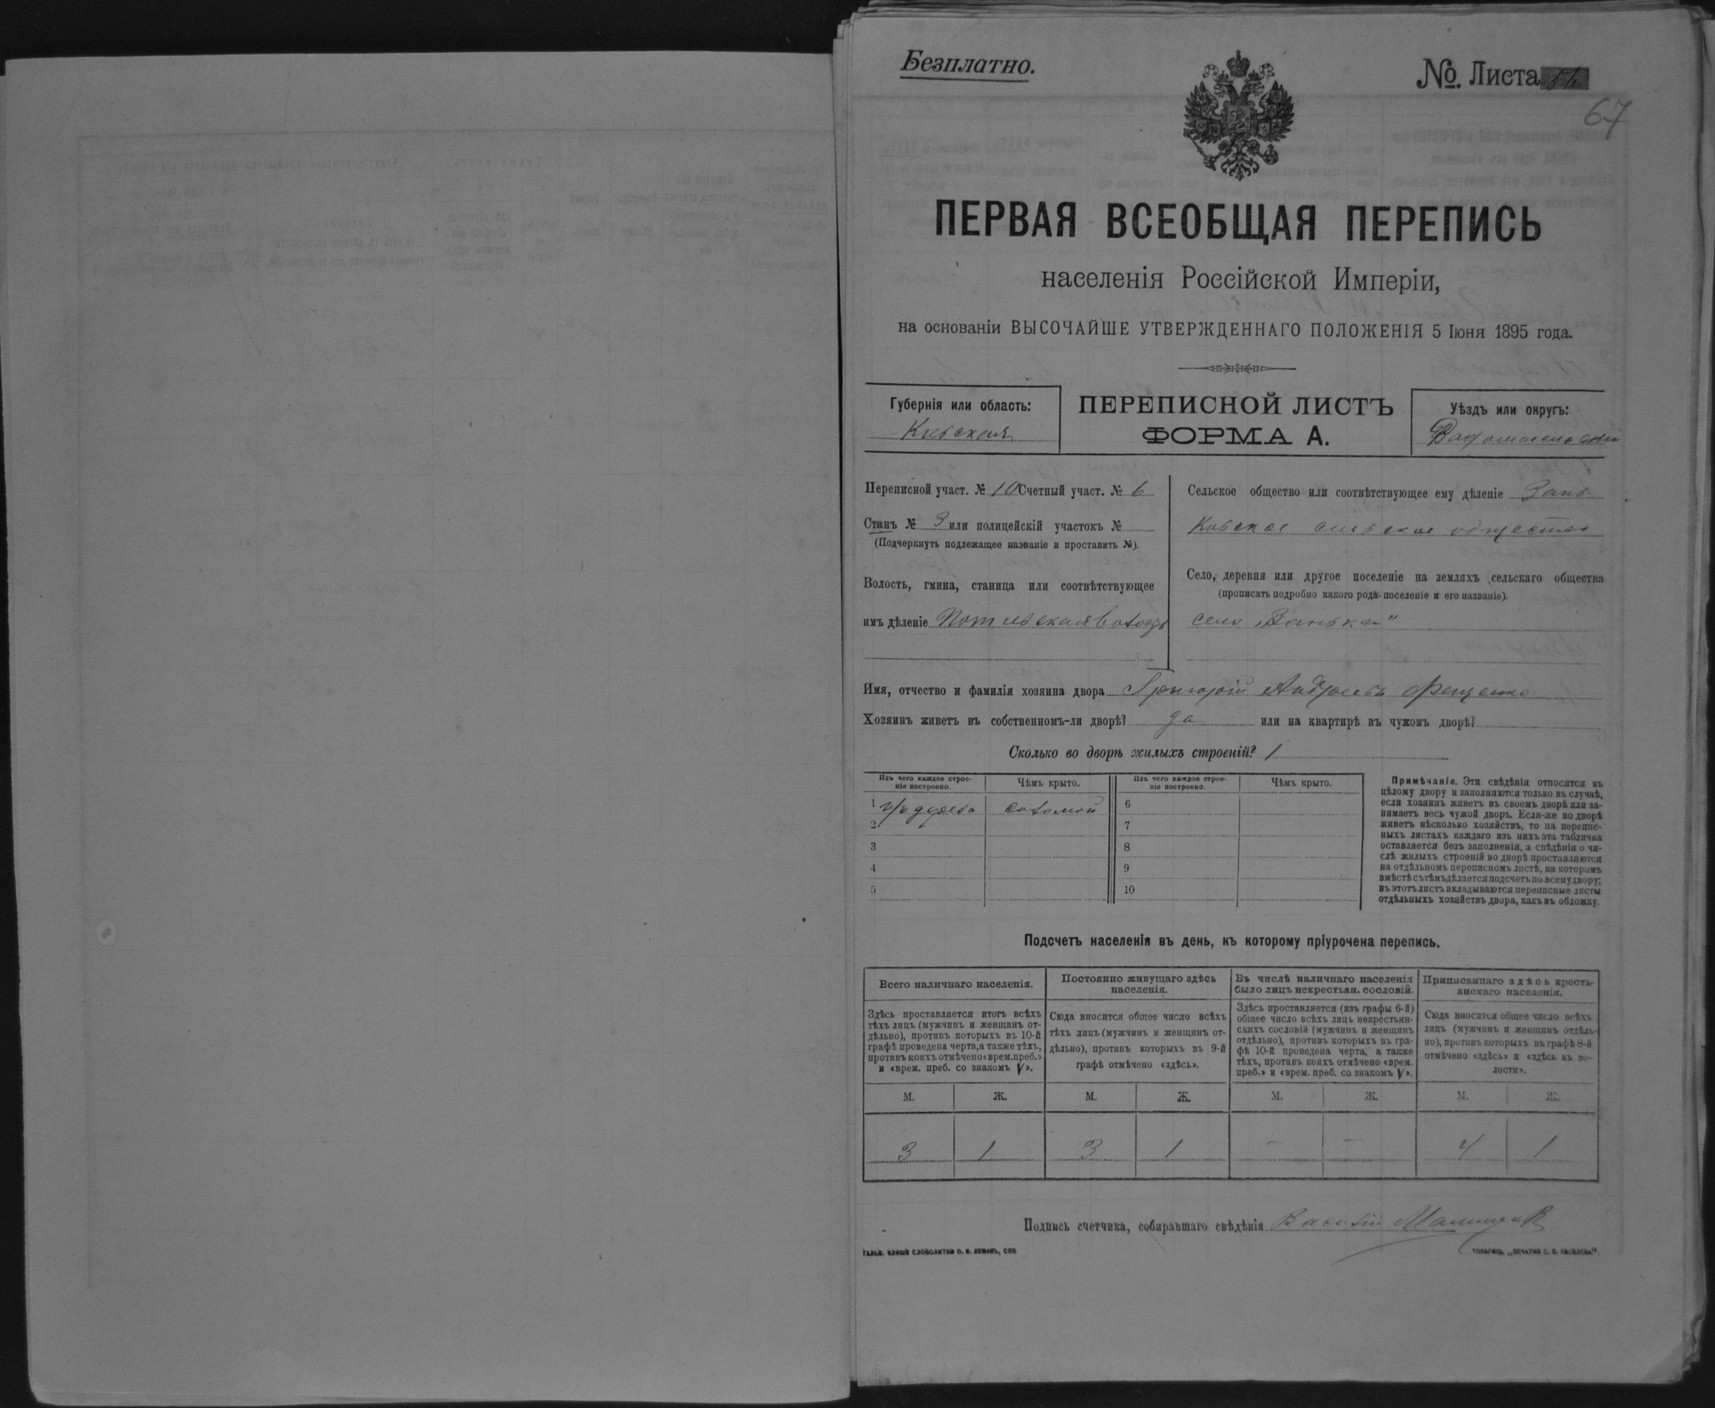 Безплатно.
№. Листа
67
ПЕРВАЯ ВСЕОБЩАЯ ПЕРЕПИСЬ
населенія Россійской Имперіи,
на основаніи ВЫСОЧАЙШЕ УТВЕРЖДЕННАГО ПОЛОЖЕНІЯ 5 Іюня 1895 года.
Губернія или область:
Кіевская
ПЕРЕПИСНОЙ ЛИСТЪ
ФОРМА А.
Уѣздъ или округъ:
Переписной участ. № 10 Счетный участ. № 6
Станъ № 3 или полицейскій участокъ №
(Подчеркнуть подлежащее названіе и проставить №).
Волость, гмина, станица или соотвѣтствующее
имъ дѣленіе
Сельское общество или соотвѣтствующее ему дѣленіе Зань-
ковское сельское общество
Село, деревня или другое поселеніе на земляхъ сельскаго общества
(прописать подробно какого рода поселеніе и его названіе).
село „Занька"
Имя, отчество и фамилія хозяина двора Григорій Андреевъ Фещенко
Хозяинъ живетъ въ собственномъ-ли дворѣ? да или на квартирѣ въ чужомъ дворѣ?
Сколько во дворѣ жилыхъ строеній? 1
Изъ чего каждое строе-
ніе построено.
Чѣмъ крыто.
Изъ чего каждое строе-
ніе построено.
Чѣмъ крыто.
1 изъ дерева соломой 6
2 7
3 8
4 9
5 10
Примѣчаніе. Эти свѣдѣнія относятся къ
цѣлому двору и заполняются только въ случаѣ,
если хозяинъ живетъ въ своемъ дворѣ или за-
нимаетъ весь чужой дворъ. Если-же во дворѣ
живетъ нѣсколько хозяйствъ, то на перепис-
ныхъ листахъ каждаго изъ нихъ эта табличка
оставляется безъ заполненія, а свѣдѣнія о чи-
слѣ жилыхъ строеній во дворѣ проставляются
на отдѣльномъ переписномъ листѣ, на которомъ
вмѣстѣ съ тѣмъ дѣлается подсчетъ по всему двору;
въ этотъ листъ вкладываются переписные листы
отдѣльныхъ хозяйствъ двора, какъ въ обложку.
Подсчетъ населенія въ день, къ которому пріурочена перепись.
Всего наличнаго населенія.
Здѣсь проставляется итогъ всѣхъ
тѣхъ лицъ (мужчинъ и женщинъ от-
дѣльно), противъ которыхъ въ 10-й
графѣ проведена черта, а также тѣхъ,
противъ коихъ отмѣчено «врем. преб.»
и «врем. преб. со знакомъ V».
Постоянно живущаго здѣсь
населенія.
Сюда вносится общее число всѣхъ
тѣхъ лицъ (мужчинъ и женщинъ от-
дѣльно), противъ которыхъ въ 9-й
графѣ отмѣчено «здѣсь».
Въ числѣ наличнаго населенія
было лицъ некрестьян. сословій.
Здѣсь проставляется (изъ графы 6-й)
общее число всѣхъ лицъ некрестьян-
скихъ сословій (мужчинъ и женщинъ
отдѣльно), противъ которыхъ въ гра-
фѣ 10-й проведена черта, а также
тѣхъ, противъ коихъ отмѣчено «врем.
преб.» и «врем. преб. со знакомъ V».
Приписаннаго здѣсь кресть-
янскаго населенія.
Сюда вносится общее число всѣхъ
лицъ (мужчинъ и женщинъ отдѣль-
но), противъ которыхъ въ графѣ 8-й
отмѣчено «здѣсь» и «здѣсь въ во-
лости».
М. Ж. М. Ж. М. Ж. М. Ж.
3 1 3 1 — — 4 1
Подпись счетчика, собиравшаго свѣдѣнія
ГАЛЬВ. КЛИШЕ СЛОВОЛИТНИ О. И. ЛЕМАНЪ, СПБ.
ТОВАРИЩ. „ПЕЧАТНЯ С. П. ЯКОВЛЕВА".